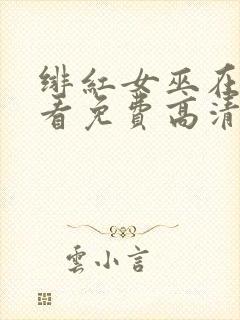 绯紅女巫在
看免費高清
雲小言